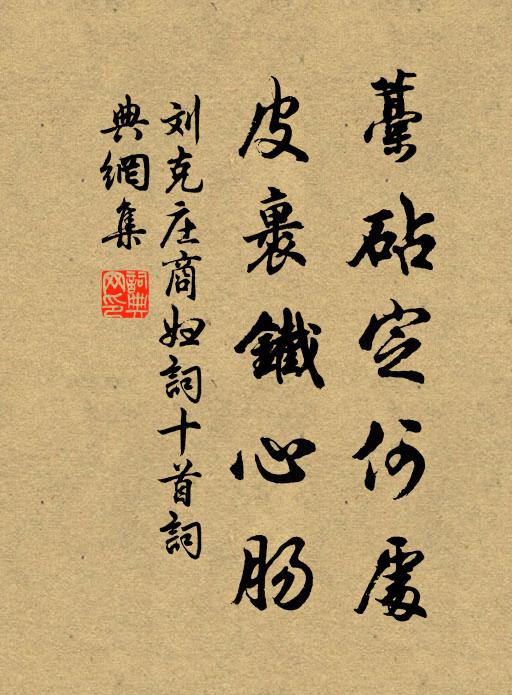 藁砧定何處
皮裹鐵心肠
刘克庄商妇詞十首詞
典網集
詞典网印